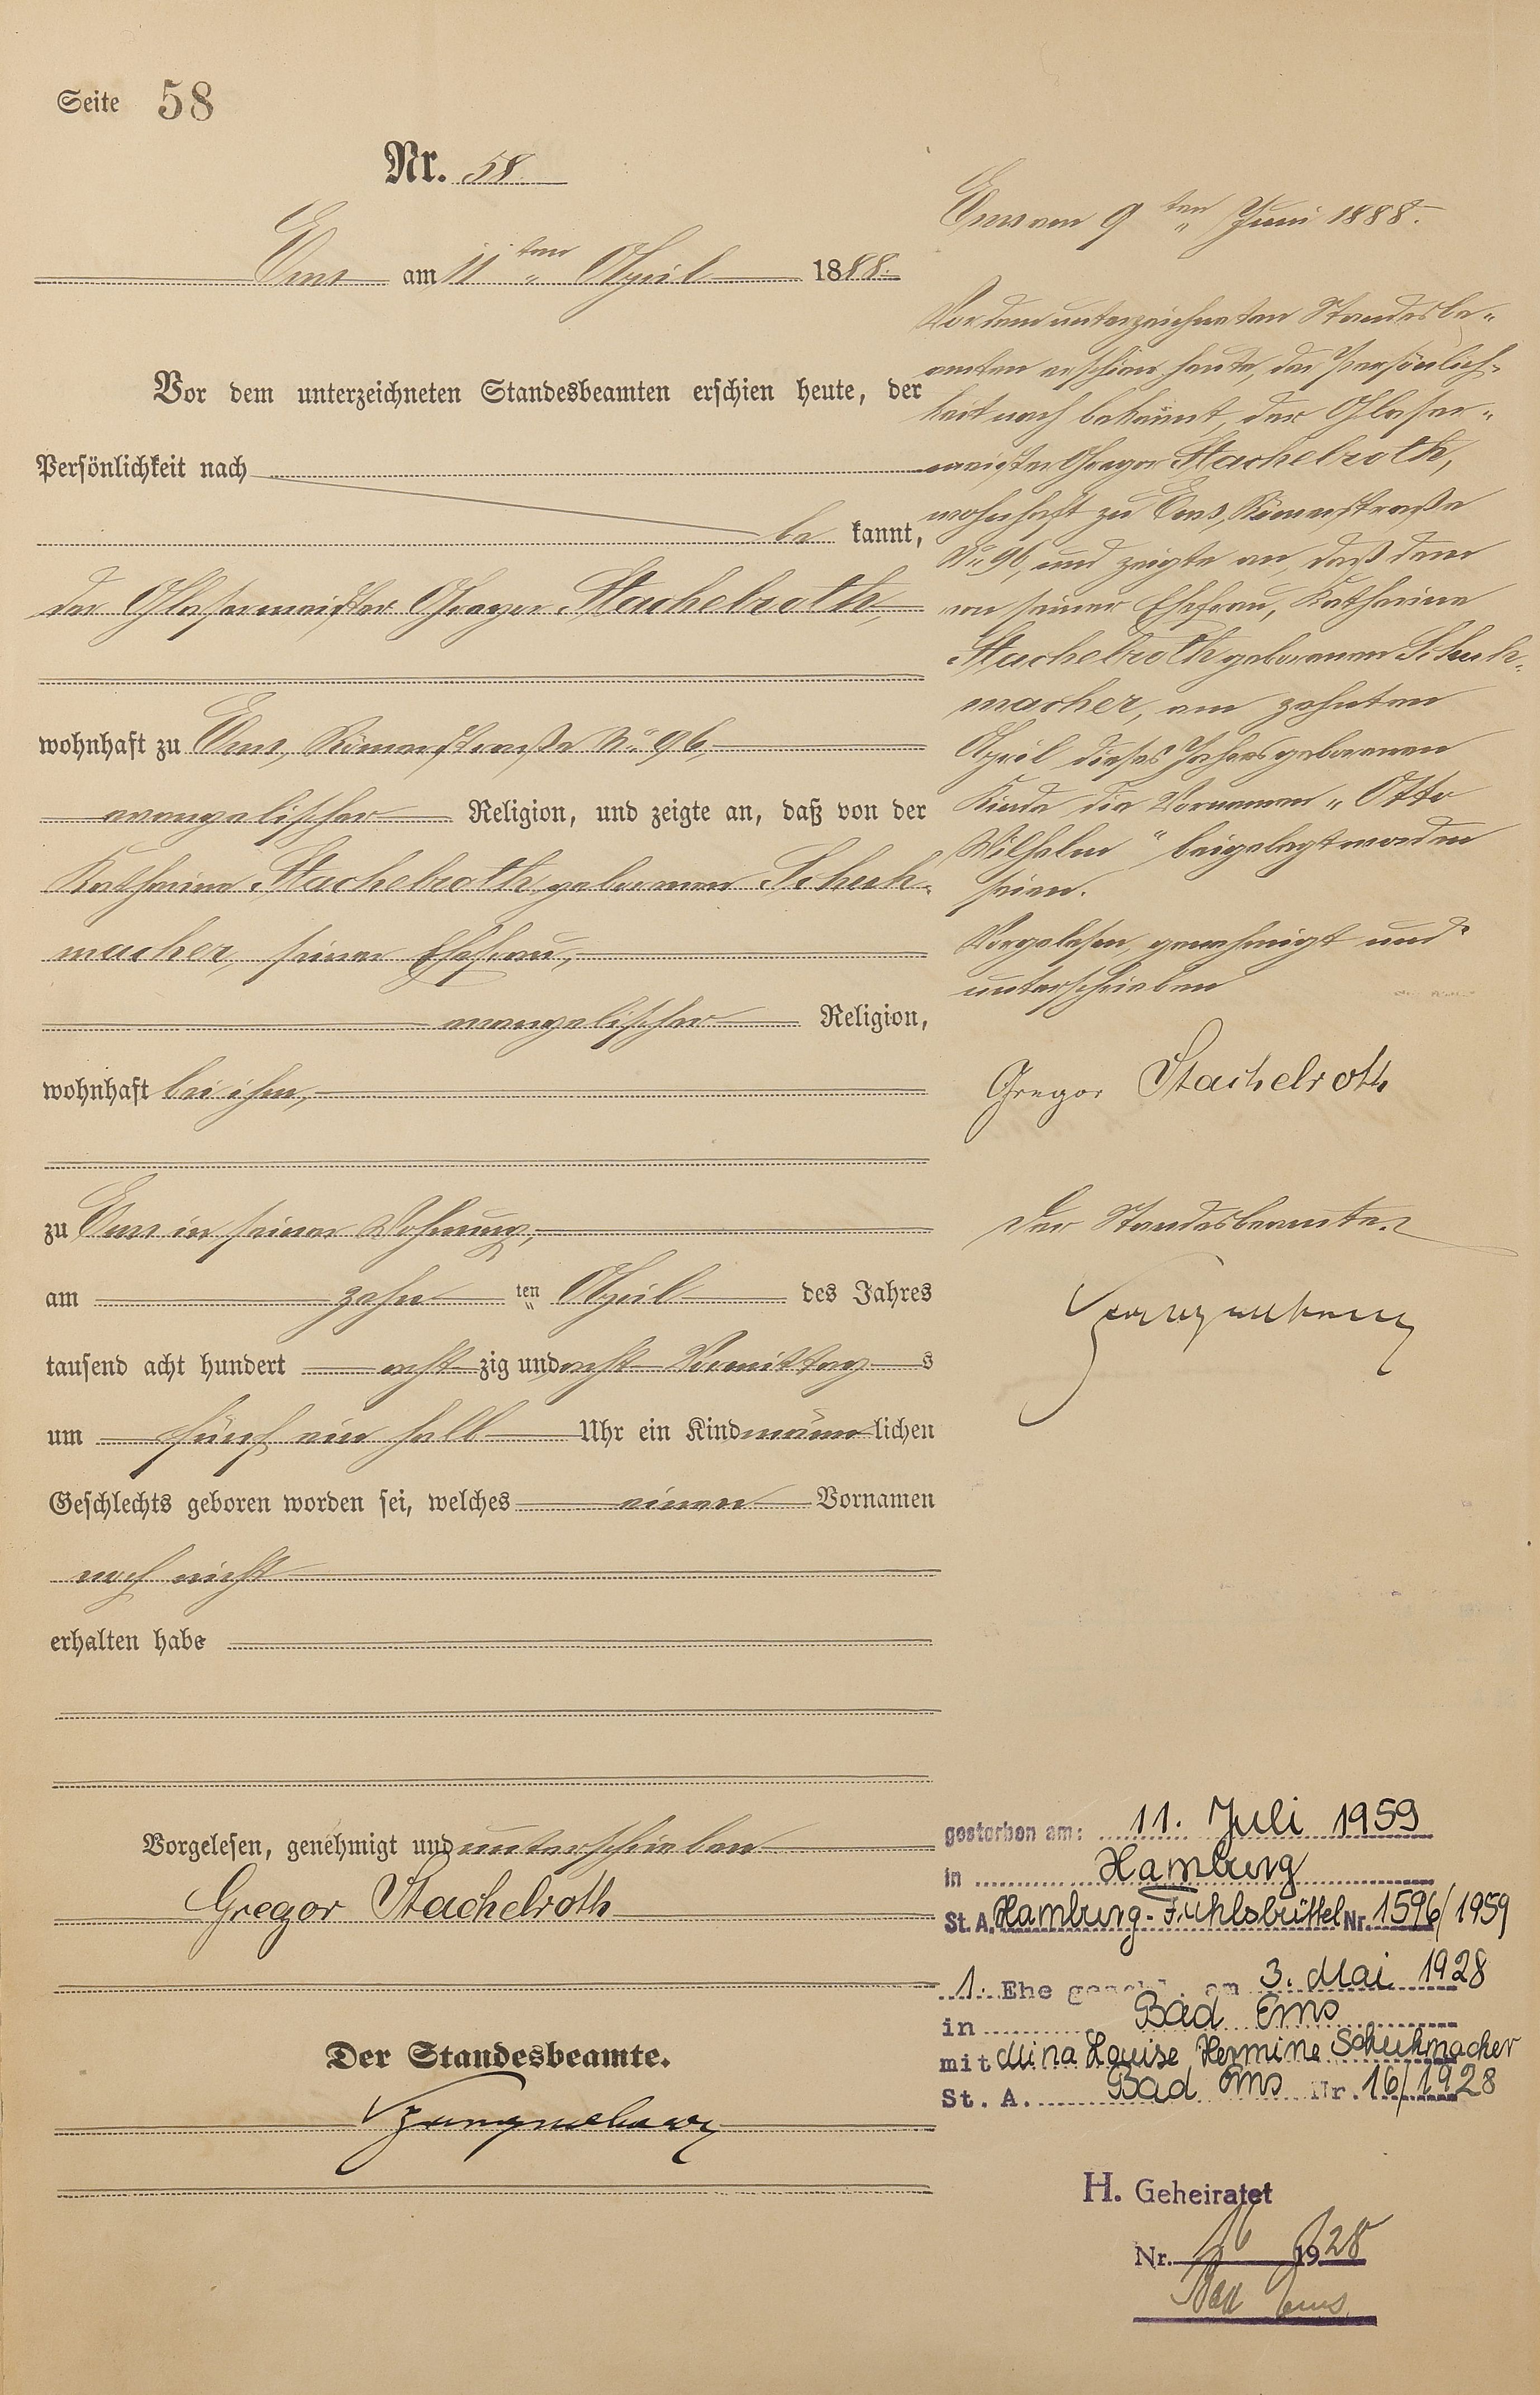 Seite 58
Nr. 58.
Ems am 11 ten April 1888.
Vor dem unterzeichneten Standesbeamten erschien heute, der
Persönlichkeit nach
be kannt,
der Glasermeister Gregor Stachelroth,
wohnhaft zu Ems, Römerstraße No 96,
evangelischer Religion, und zeigte an, daß von der
Katharina Stachelroth geborenen Schuh-
macher, seiner Ehefrau,
evangelischer Religion,
wohnhaft bei ihm,
zu Ems in seiner Wohnung,
am zehn ten April des Jahres
tausend acht hundert acht zig und acht Vormittag s
um fünf ein halb Uhr ein Kind männ lichen
Geschlechts geboren worden sei, welches einen Vornamen
noch nicht
erhalten habe
Vorgelesen, genehmigt und unterschrieben
Gregor Stachelroth
Der Standesbeamte.
Ems am 9 ten Juni 1888.
Vor dem unterzeichneten Standesbe-
amten erschien heute, der Persönlich-
keit nach bekannt, der Glaser-
meister Gregor Stachelroth,
wohnhaft zu Ems, Römerstraße
No 96, und zeigte an, daß dem
von seiner Ehefrau, Katharina
Stachelroth geborenen Schuh-
macher, am zehnten
April dieses Jahres geborenen
Kinde die Vornamen „Otto
Wilhelm" beigelegt worden
seien.
Vorgelesen, genehmigt und
unterschrieben
Gregor Stachelroth
Der Standesbeamte.
gestorben am: 11. Juli 1959
in Hamburg
St. A. Hamburg-Fuhlsbüttel Nr. 1596/1959
1. Ehe geschl. am 3. Mai 1928
in Bad Ems
mit Mina Louise Hermine Schuhmacher
St. A. Bad Ems Nr. 16/1928
H. Geheiratet
Nr. 16 1928
Bad Ems